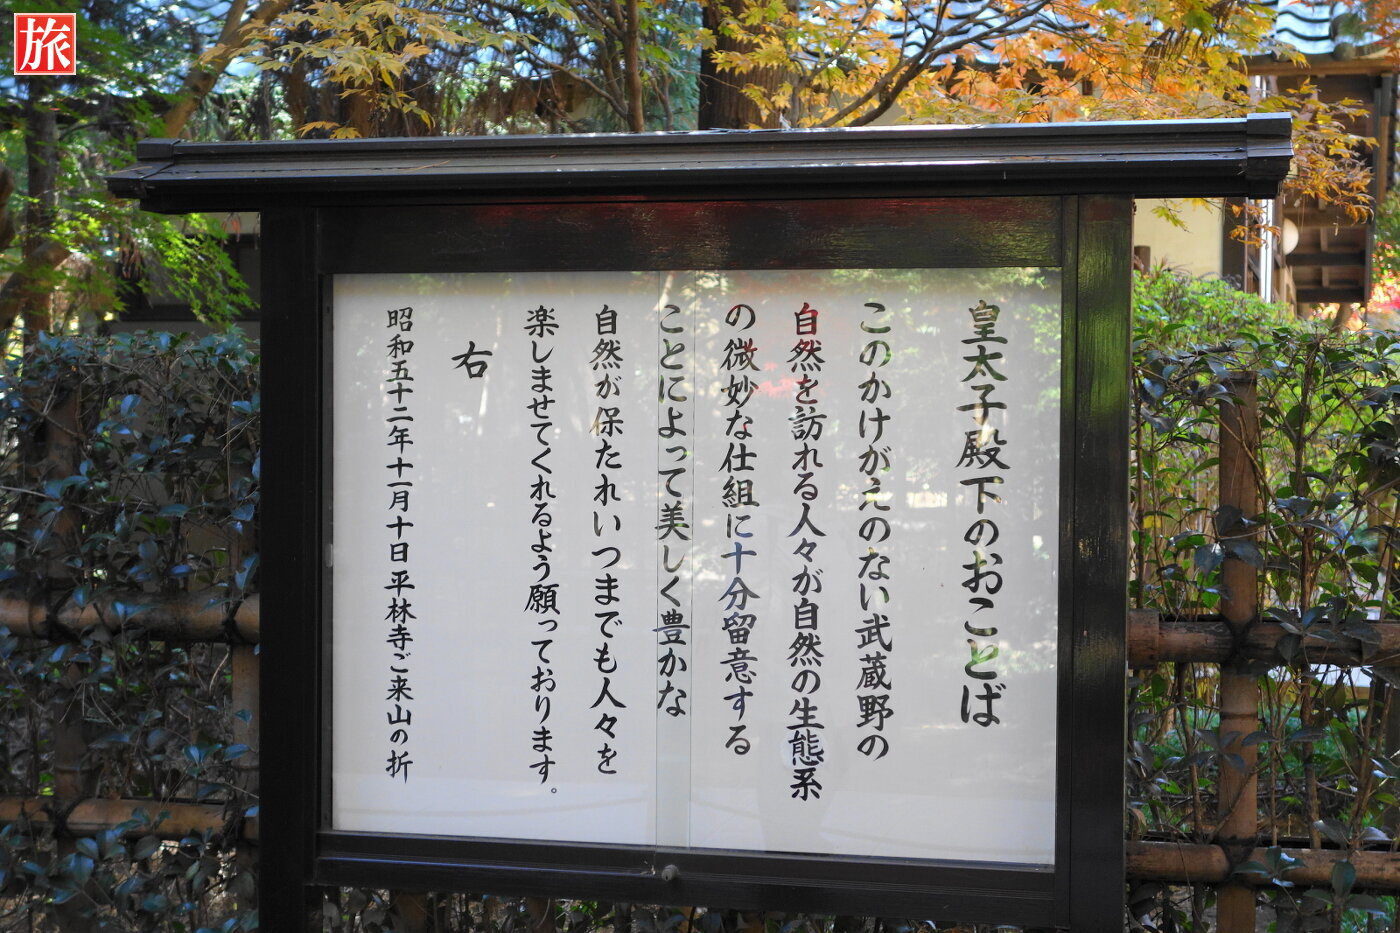 旅
皇太子殿下のおことば
このかけがえのない武蔵野の
自然を訪れる人々が自然の生態系
の微妙な仕組に十分留意する
ことによって美しく豊かな
自然が保たれいつまでも人々を
楽しませてくれるよう願っております。
右
昭和五十二年十一月十日平林寺ご来山の折